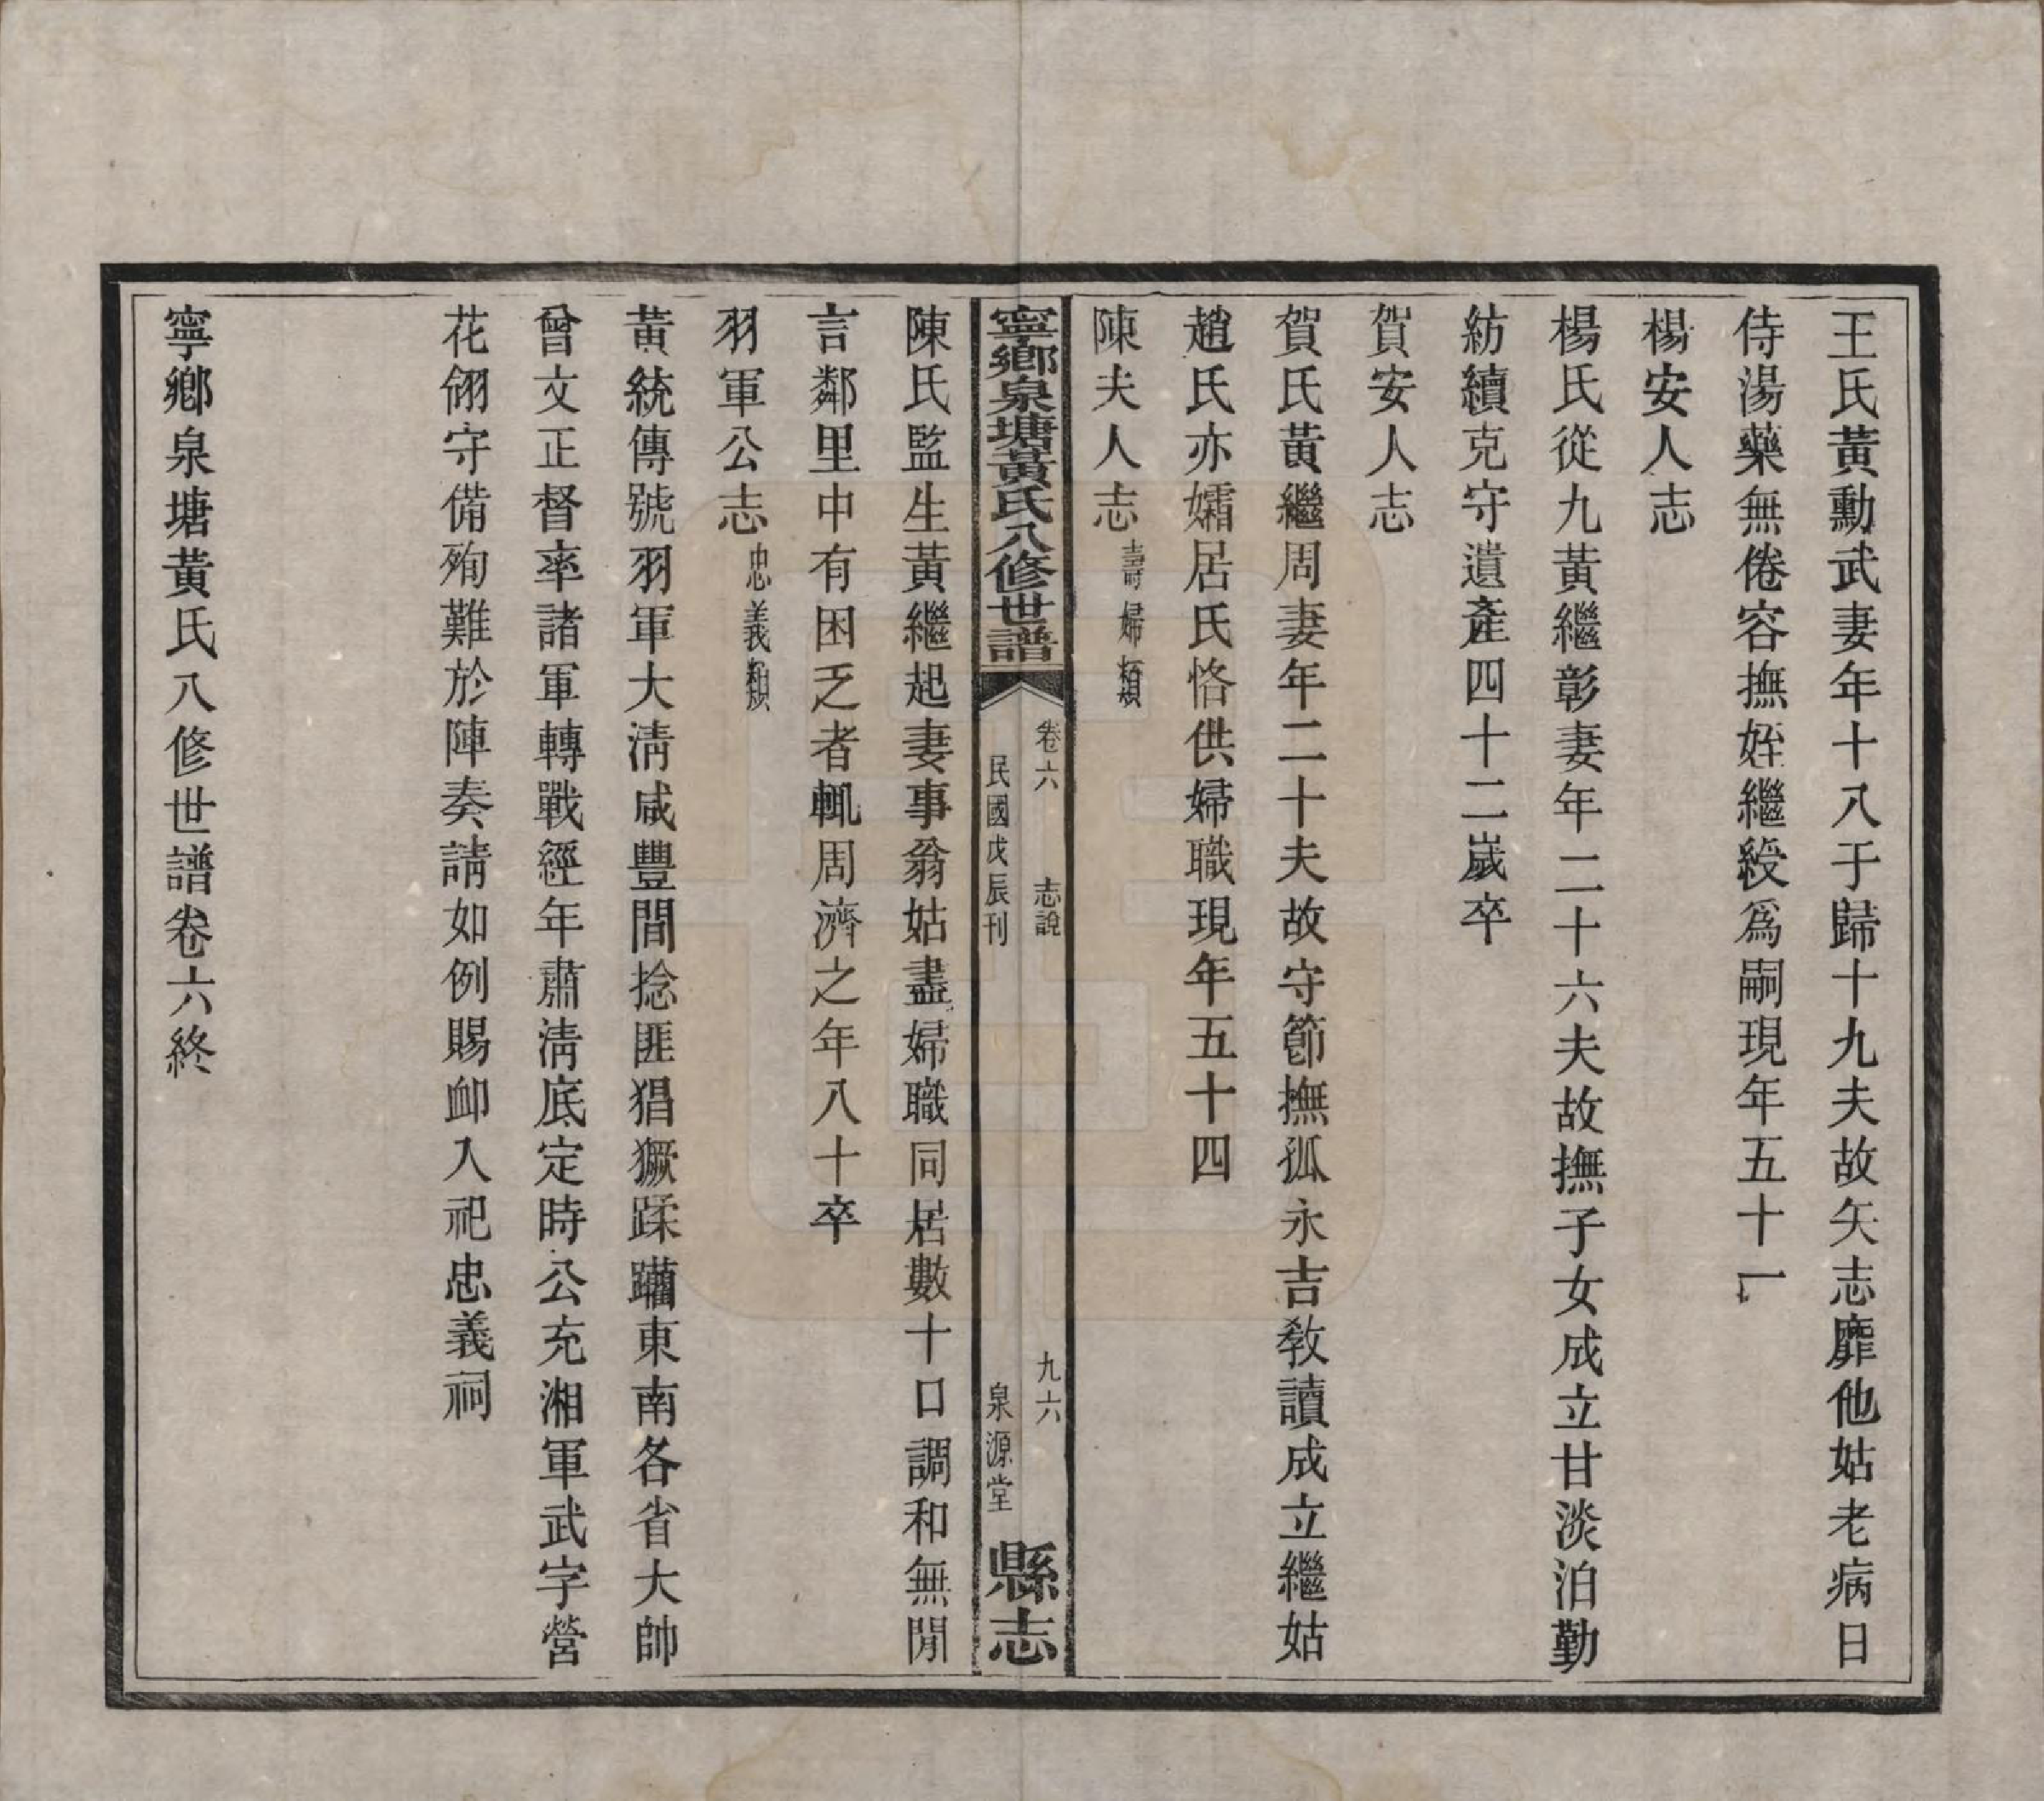 王氏黃勳武妻年十八于歸十九夫故矢志靡他姑老病日
侍湯藥無倦容撫姪繼綬爲嗣現年五十一
楊安人志
楊氏從九黃繼彰妻年二十六夫故撫子女成立甘淡泊勤
紡績克守遺產四十二歲卒
賀安人志
賀氏黃繼周妻年二十夫故守節撫孤永吉敎讀成立繼姑
趙氏亦孀居氏恪供婦職現年五十四
陳夫人志 壽婦類
寧鄕泉塘黃氏八修世譜
卷六 志說 九六
民國戊辰刊 泉源堂
縣志
陳氏監生黃繼起妻事翁姑盡婦職同居數十口調和無閒
言鄰里中有困乏者輒周濟之年八十卒
羽軍公志 忠義類
黃統傳號羽軍大淸咸豐間捻匪猖獗蹂躪東南各省大帥
曾文正督率諸軍轉戰經年肅淸底定時公充湘軍武字營
花翎守備殉難於陣奏請如例賜卹入祀忠義祠
寧鄕泉塘黃氏八修世譜卷六終